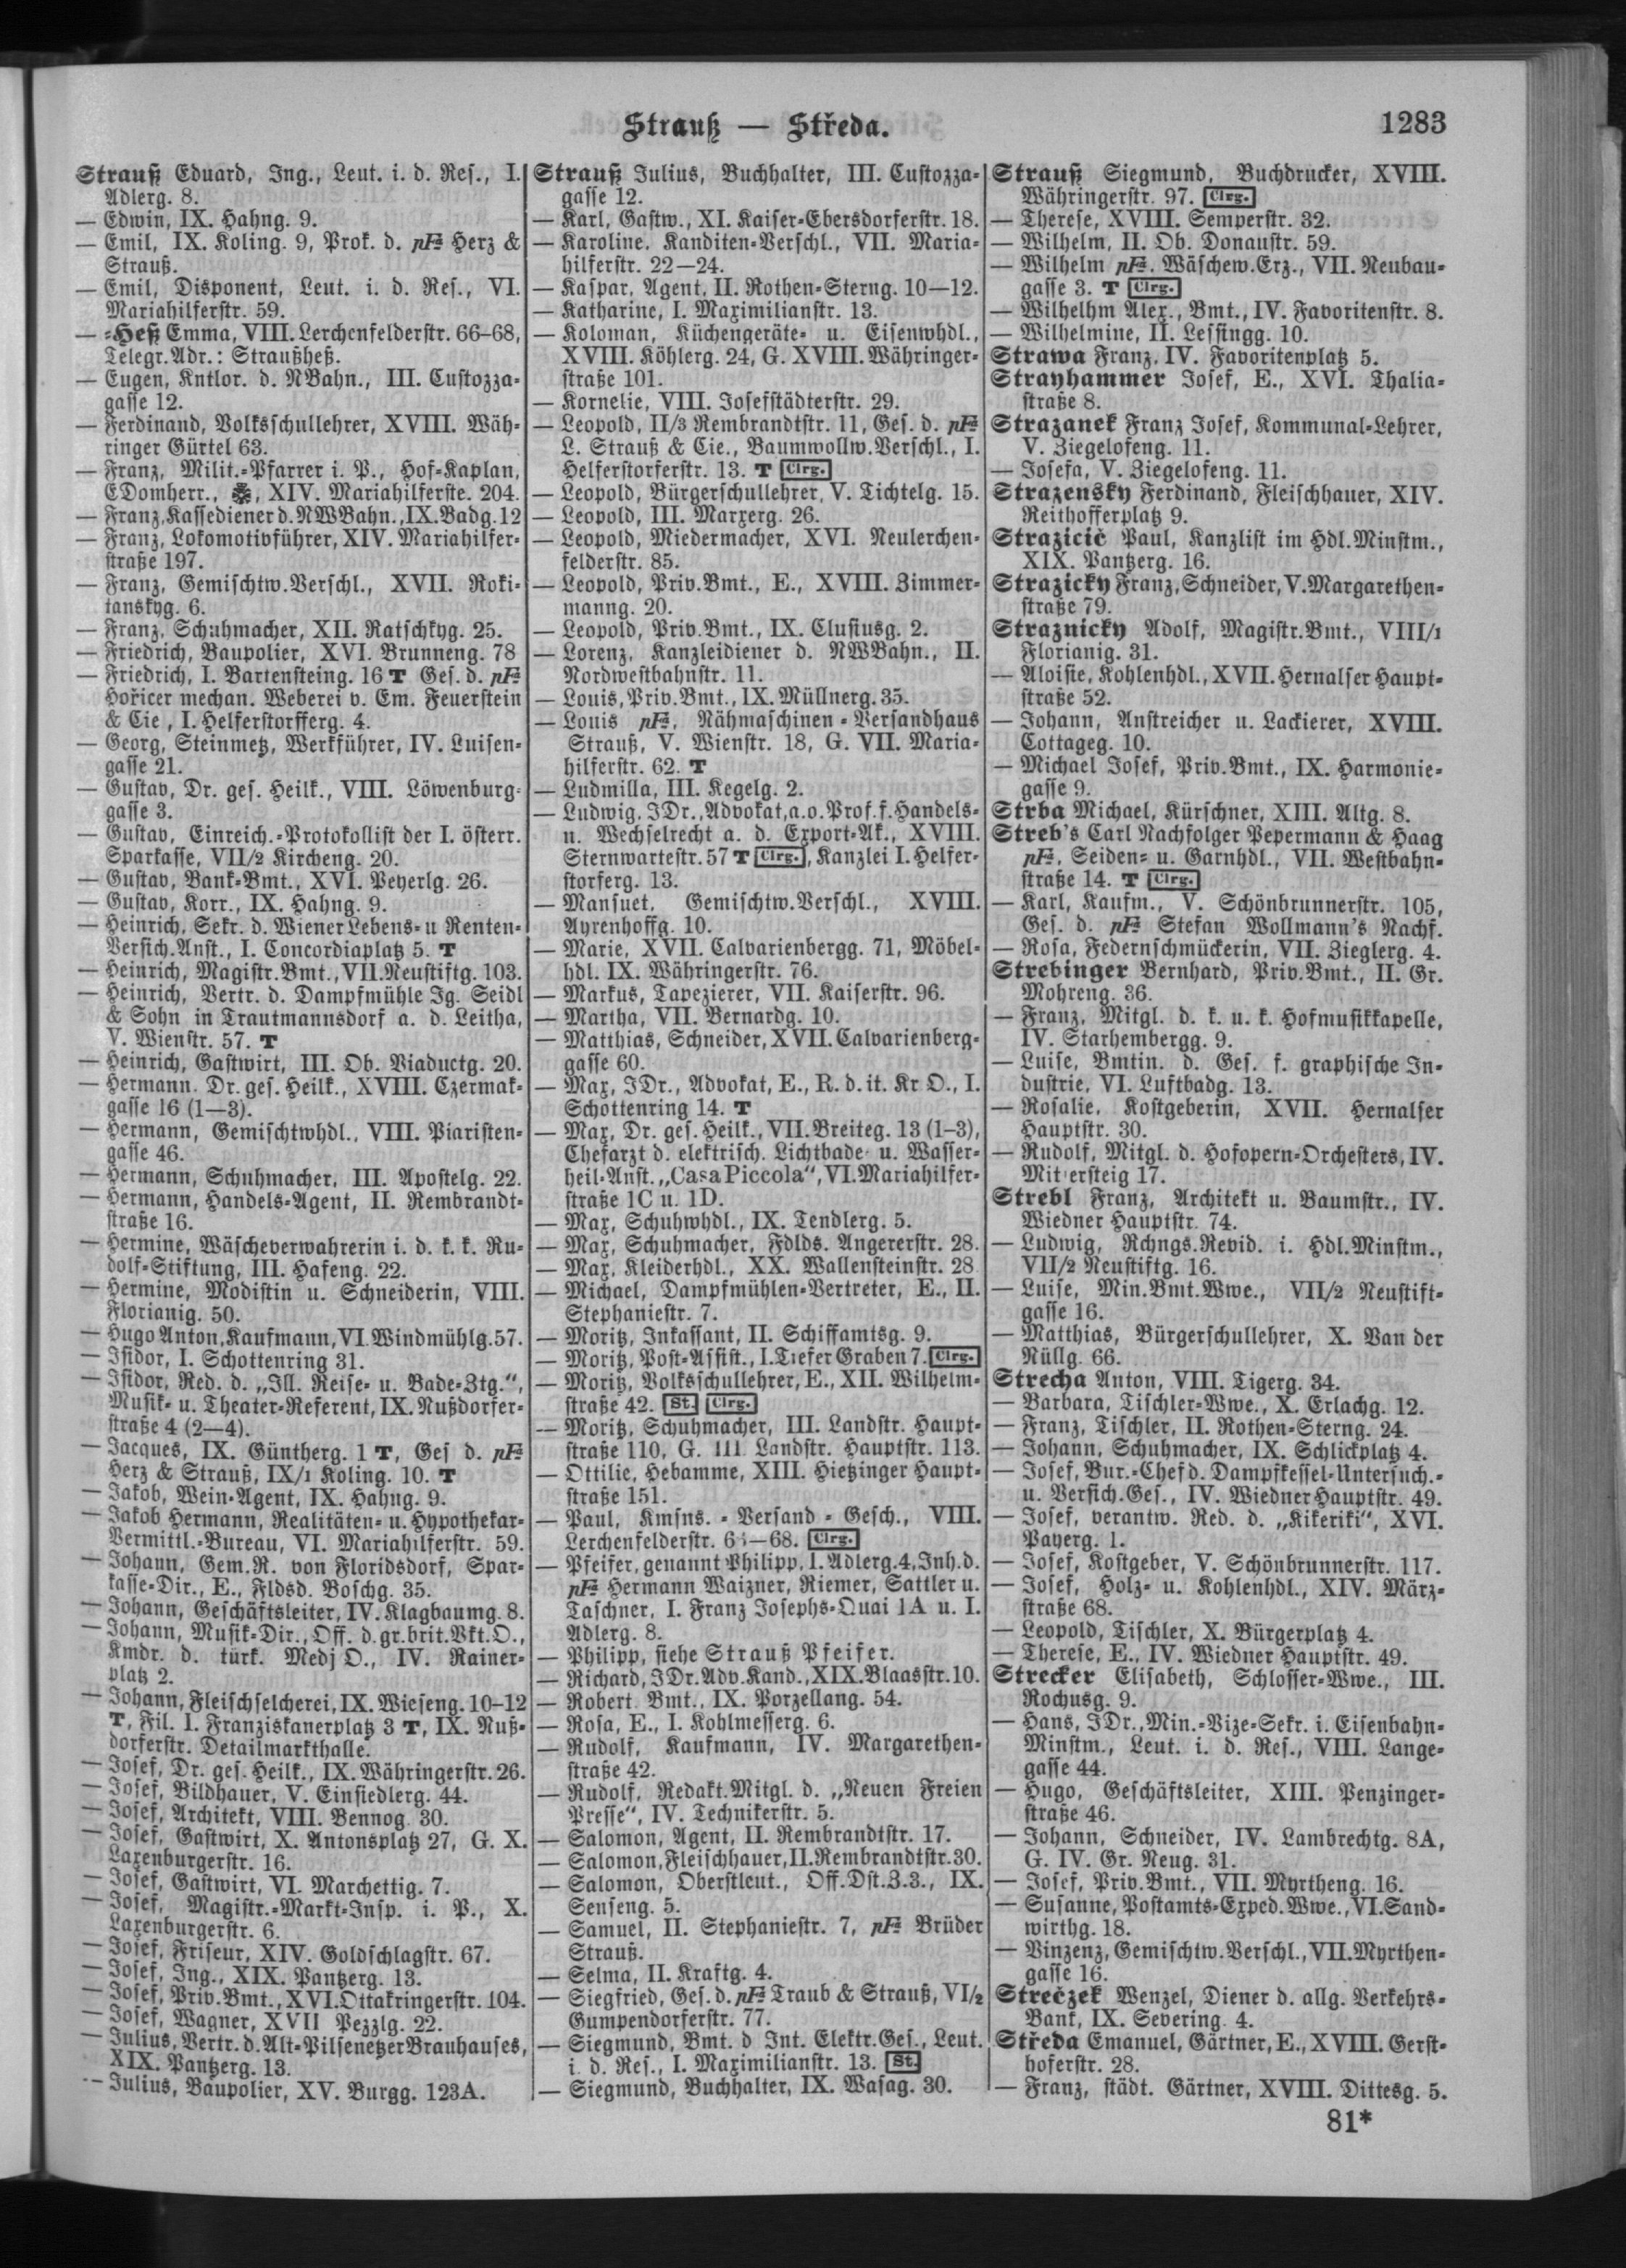 Strauß — Středa.
1283
Strauß Eduard, Ing., Leut. i. d. Res., I.
Adlerg. 8.
— Edwin, IX. Hahng. 9.
— Emil, IX. Koling. 9, Prok. d. pFa Herz &
Strauß.
— Emil, Disponent, Leut. i. d. Res., VI.
Mariahilferstr. 59.
— =Heß Emma, VIII. Lerchenfelderstr. 66–68,
Telegr. Adr.: Straußheß.
— Eugen, Kntlor. d. NBahn., III. Custozza-
gasse 12.
— Ferdinand, Volksschullehrer, XVIII. Wäh-
ringer Gürtel 63.
— Franz, Milit.-Pfarrer i. P., Hof-Kaplan,
EDomherr., XIV. Mariahilferste. 204.
— Franz, Kassediener d. NWBahn., IX. Badg. 12
— Franz, Lokomotivführer, XIV. Mariahilfer-
straße 197.
— Franz, Gemischtw. Verschl., XVII. Roki-
tanskyg. 6.
— Franz, Schuhmacher, XII. Ratschkyg. 25.
— Friedrich, Baupolier, XVI. Brunneng. 78
— Friedrich, I. Bartensteing. 16 T Ges. d. pFa
Hořicer mechan. Weberei v. Em. Feuerstein
& Cie, I. Helferstorfferg. 4.
— Georg, Steinmetz, Werkführer, IV. Luisen-
gasse 21.
— Gustav, Dr. ges. Heilk., VIII. Löwenburg-
gasse 3.
— Gustav, Einreich.-Protokollist der I. österr.
Sparkasse, VII/2 Kircheng. 20.
— Gustav, Bank-Bmt., XVI. Peyerlg. 26.
— Gustav, Korr., IX. Hahng. 9.
— Heinrich, Sekr. d. Wiener Lebens- u Renten-
Versich. Anst., I. Concordiaplatz 5. T
— Heinrich, Magistr. Bmt., VII. Neustiftg. 103.
— Heinrich, Vertr. d. Dampfmühle Ig. Seidl
& Sohn in Trautmannsdorf a. d. Leitha,
V. Wienstr. 57. T
— Heinrich, Gastwirt, III. Ob. Viaductg. 20.
— Hermann, Dr. ges. Heilk., XVIII. Czermak-
gasse 16 (1—3).
— Hermann, Gemischtwhdl., VIII. Piaristen-
gasse 46.
— Hermann, Schuhmacher, III. Apostelg. 22.
— Hermann, Handels-Agent, II. Rembrandt-
straße 16.
— Hermine, Wäscheverwahrerin i. d. k. k. Ru-
dolf-Stiftung, III. Hafeng. 22.
— Hermine, Modistin u. Schneiderin, VIII.
Florianig. 50.
— Hugo Anton, Kaufmann, VI. Windmühlg. 57.
— Isidor, I. Schottenring 31.
— Isidor, Red. d. „Ill. Reise- u. Bade-Ztg.",
Musik- u. Theater-Referent, IX. Nußdorfer-
straße 4 (2—4).
— Jacques, IX. Güntherg. 1 T, Ges d. pFa
Herz & Strauß, IX/1 Koling. 10. T
— Jakob, Wein-Agent, IX. Hahng. 9.
— Jakob Hermann, Realitäten- u. Hypothekar-
Vermittl.-Bureau, VI. Mariahilferstr. 59.
— Johann, Gem. R. von Floridsdorf, Spar-
kasse-Dir., E., Fldsd. Boschg. 35.
— Johann, Geschäftsleiter, IV. Klagbaumg. 8.
— Johann, Musik-Dir., Off. d. gr. brit. Vkt. O.,
Kmdr. d. türk. Medj O., IV. Rainer-
platz 2.
— Johann, Fleischselcherei, IX. Wieseng. 10–12
T, Fil. I. Franziskanerplatz 3 T, IX. Nuß-
dorferstr. Detailmarkthalle.
— Josef, Dr. ges. Heilk., IX. Währingerstr. 26.
— Josef, Bildhauer, V. Einsiedlerg. 44.
— Josef, Architekt, VIII. Bennog. 30.
— Josef, Gastwirt, X. Antonsplatz 27, G. X.
Laxenburgerstr. 16.
— Josef, Gastwirt, VI. Marchettig. 7.
— Josef, Magistr.-Markt-Insp. i. P., X.
Laxenburgerstr. 6.
— Josef, Friseur, XIV. Goldschlagstr. 67.
— Josef, Ing., XIX. Pantzerg. 13.
— Josef, Priv. Bmt., XVI. Ottakringerstr. 104.
— Josef, Wagner, XVII Pezzlg. 22.
— Julius, Vertr. d. Alt-Pilsenetzer Brauhauses,
XIX. Pantzerg. 13.
— Julius, Baupolier, XV. Burgg. 123A.
Strauß Julius, Buchhalter, III. Custozza-
gasse 12.
— Karl, Gastw., XI. Kaiser-Ebersdorferstr. 18.
— Karoline, Kanditen-Verschl., VII. Maria-
hilferstr. 22—24.
— Kaspar, Agent, II. Rothen-Sterng. 10—12.
— Katharine, I. Maximilianstr. 13.
— Koloman, Küchengeräte- u. Eisenwhdl.,
XVIII. Köhlerg. 24, G. XVIII. Währinger-
straße 101.
— Kornelie, VIII. Josefstädterstr. 29.
— Leopold, II/3 Rembrandtstr. 11, Ges. d. pFa
L. Strauß & Cie., Baumwollw. Verschl., I.
Helferstorferstr. 13. T Clrg.
— Leopold, Bürgerschullehrer, V. Tichtelg. 15.
— Leopold, III. Marxerg. 26.
— Leopold, Miedermacher, XVI. Neulerchen-
felderstr. 85.
— Leopold, Priv. Bmt., E., XVIII. Zimmer-
manng. 20.
— Leopold, Priv. Bmt., IX. Clusiusg. 2.
— Lorenz, Kanzleidiener d. NWBahn., II.
Nordwestbahnstr. 11.
— Louis, Priv. Bmt., IX. Müllnerg. 35.
— Louis pFa, Nähmaschinen-Versandhaus
Strauß, V. Wienstr. 18, G. VII. Maria-
hilferstr. 62. T
— Ludmilla, III. Kegelg. 2.
— Ludwig, JDr., Advokat, a. o. Prof. f. Handels-
u. Wechselrecht a. d. Export-Ak., XVIII.
Sternwartestr. 57 T Clrg., Kanzlei I. Helfer-
storferg. 13.
— Mansuet, Gemischtw. Verschl., XVIII.
Ayrenhoffg. 10.
— Marie, XVII. Calvarienbergg. 71, Möbel-
hdl. IX. Währingerstr. 76.
— Markus, Tapezierer, VII. Kaiserstr. 96.
— Martha, VII. Bernardg. 10.
— Matthias, Schneider, XVII. Calvarienberg-
gasse 60.
— Max, JDr., Advokat, E., R. d. it. Kr O., I.
Schottenring 14. T
— Max, Dr. ges. Heilk., VII. Breiteg. 13 (1–3),
Chefarzt d. elektrisch. Lichtbade- u. Wasser-
heil-Anst. „Casa Piccola", VI. Mariahilfer-
straße 1C u. 1D.
— Max, Schuhwhdl., IX. Tendlerg. 5.
— Max, Schuhmacher, Fdlds. Angererstr. 28.
— Max, Kleiderhdl., XX. Wallensteinstr. 28
— Michael, Dampfmühlen-Vertreter, E., II.
Stephaniestr. 7.
— Moritz, Inkassant, II. Schiffamtsg. 9.
— Moritz, Post-Assist., I. Tiefer Graben 7. Clrg.
— Moritz, Volksschullehrer, E., XII. Wilhelm-
straße 42. St. Clrg.
— Moritz, Schuhmacher, III. Landstr. Haupt-
straße 110, G. III. Landstr. Hauptstr. 113.
— Ottilie, Hebamme, XIII. Hietzinger Haupt-
straße 151.
— Paul, Kmsns.-Versand-Gesch., VIII.
Lerchenfelderstr. —68. Clrg.
— Pfeifer, genannt Philipp, I. Adlerg. 4, Inh. d.
pFa Hermann Waizner, Riemer, Sattler u.
Taschner, I. Franz Josephs-Quai 1A u. I.
Adlerg. 8.
— Philipp, siehe Strauß Pfeifer.
— Richard, JDr. Adv. Kand., XIX. Blaasstr. 10.
— Robert. Bmt., IX. Porzellang. 54.
— Rosa, E., I. Kohlmesserg. 6.
— Rudolf, Kaufmann, IV. Margarethen-
straße 42.
— Rudolf, Redakt. Mitgl. d. „Neuen Freien
Presse", IV. Technikerstr. 5.
— Salomon, Agent, II. Rembrandtstr. 17.
— Salomon, Fleischhauer, II. Rembrandtstr. 30.
— Salomon, Oberstleut., Off. Dst. Z. 3., IX.
Senseng. 5.
— Samuel, II. Stephaniestr. 7, pFa Brüder
Strauß.
— Selma, II. Kraftg. 4.
— Siegfried, Ges. d. pFa Traub & Strauß, VI/2
Gumpendorferstr. 77.
— Siegmund, Bmt. d Int. Elektr. Ges., Leut.
i. d. Res., I. Maximilianstr. 13. St.
— Siegmund, Buchhalter, IX. Wasag. 30.
Strauß Siegmund, Buchdrucker, XVIII.
Währingerstr. 97. Clrg.
— Therese, XVIII. Semperstr. 32.
— Wilhelm, II. Ob. Donaustr. 59.
— Wilhelm pFa. Wäschew. Erz., VII. Neubau-
gasse 3. T Clrg.
— Wilhelhm Alex., Bmt., IV. Favoritenstr. 8.
— Wilhelmine, II. Lessingg. 10.
Strawa Franz, IV. Favoritenplatz 5.
Strayhammer Josef, E., XVI. Thalia-
straße 8.
Strazanek Franz Josef, Kommunal-Lehrer,
V. Ziegelofeng. 11.
— Josefa, V. Ziegelofeng. 11.
Strazensky Ferdinand, Fleischhauer, XIV.
Reithofferplatz 9.
Strazicić Paul, Kanzlist im Hdl. Minstm.,
XIX. Pantzerg. 16.
Strazicky Franz, Schneider, V. Margarethen-
straße 79.
Straznicky Adolf, Magistr. Bmt., VIII/1
Florianig. 31.
— Aloisie, Kohlenhdl., XVII. Hernalser Haupt-
straße 52.
— Johann, Anstreicher u. Lackierer, XVIII.
Cottageg. 10.
— Michael Josef, Priv. Bmt., IX. Harmonie-
gasse 9.
Strba Michael, Kürschner, XIII. Altg. 8.
Streb's Carl Nachfolger Pepermann & Haag
pFa, Seiden- u. Garnhdl., VII. Westbahn-
straße 14. T Clrg.
— Karl, Kaufm., V. Schönbrunnerstr. 105,
Ges. d. pFa Stefan Wollmann's Nachf.
— Rosa, Federnschmückerin, VII. Zieglerg. 4.
Strebinger Bernhard, Priv. Bmt., II. Gr.
Mohreng. 36.
— Franz, Mitgl. d. k. u. k. Hofmusikkapelle,
IV. Starhembergg. 9.
— Luise, Bmtin. d. Ges. f. graphische In-
dustrie, VI. Luftbadg. 13.
— Rosalie, Kostgeberin, XVII. Hernalser
Hauptstr. 30.
— Rudolf, Mitgl. d. Hofopern-Orchesters, IV.
Mittersteig 17.
Strebl Franz, Architekt u. Baumstr., IV.
Wiedner Hauptstr. 74.
— Ludwig, Rchngs. Revid. i. Hdl. Minstm.,
VII/2 Neustiftg. 16.
— Luise, Min. Bmt. Wwe., VII/2 Neustift-
gasse 16.
— Matthias, Bürgerschullehrer, X. Van der
Nüllg. 66.
Strecha Anton, VIII. Tigerg. 34.
— Barbara, Tischler-Wwe., X. Erlachg. 12.
— Franz, Tischler, II. Rothen-Sterng. 24.
— Johann, Schuhmacher, IX. Schlickplatz 4.
— Josef, Bur.-Chef d. Dampfkessel-Untersuch.-
u. Versich. Ges., IV. Wiedner Hauptstr. 49.
— Josef, verantw. Red. d. „Kikeriki", XVI.
Payerg. 1.
— Josef, Kostgeber, V. Schönbrunnerstr. 117.
— Josef, Holz- u. Kohlenhdl., XIV. März-
straße 68.
— Leopold, Tischler, X. Bürgerplatz 4.
— Therese, E., IV. Wiedner Hauptstr. 49.
Strecker Elisabeth, Schlosser-Wwe., III.
Rochusg. 9.
— Hans, JDr., Min.-Vize-Sekr. i. Eisenbahn-
Minstm., Leut. i. d. Res., VIII. Lange-
gasse 44.
— Hugo, Geschäftsleiter, XIII. Penzinger-
straße 46.
— Johann, Schneider, IV. Lambrechtg. 8A,
G. IV. Gr. Neug. 31.
— Josef, Priv. Bmt., VII. Myrtheng. 16.
— Susanne, Postamts-Exped. Wwe., VI. Sand-
wirthg. 18.
— Vinzenz, Gemischtw. Verschl., VII. Myrthen-
gasse 16.
Strečzek Wenzel, Diener d. allg. Verkehrs-
Bank, IX. Severing. 4.
Středa Emanuel, Gärtner, E., XVIII. Gerst-
hoferstr. 28.
— Franz, städt. Gärtner, XVIII. Dittesg. 5.
81*